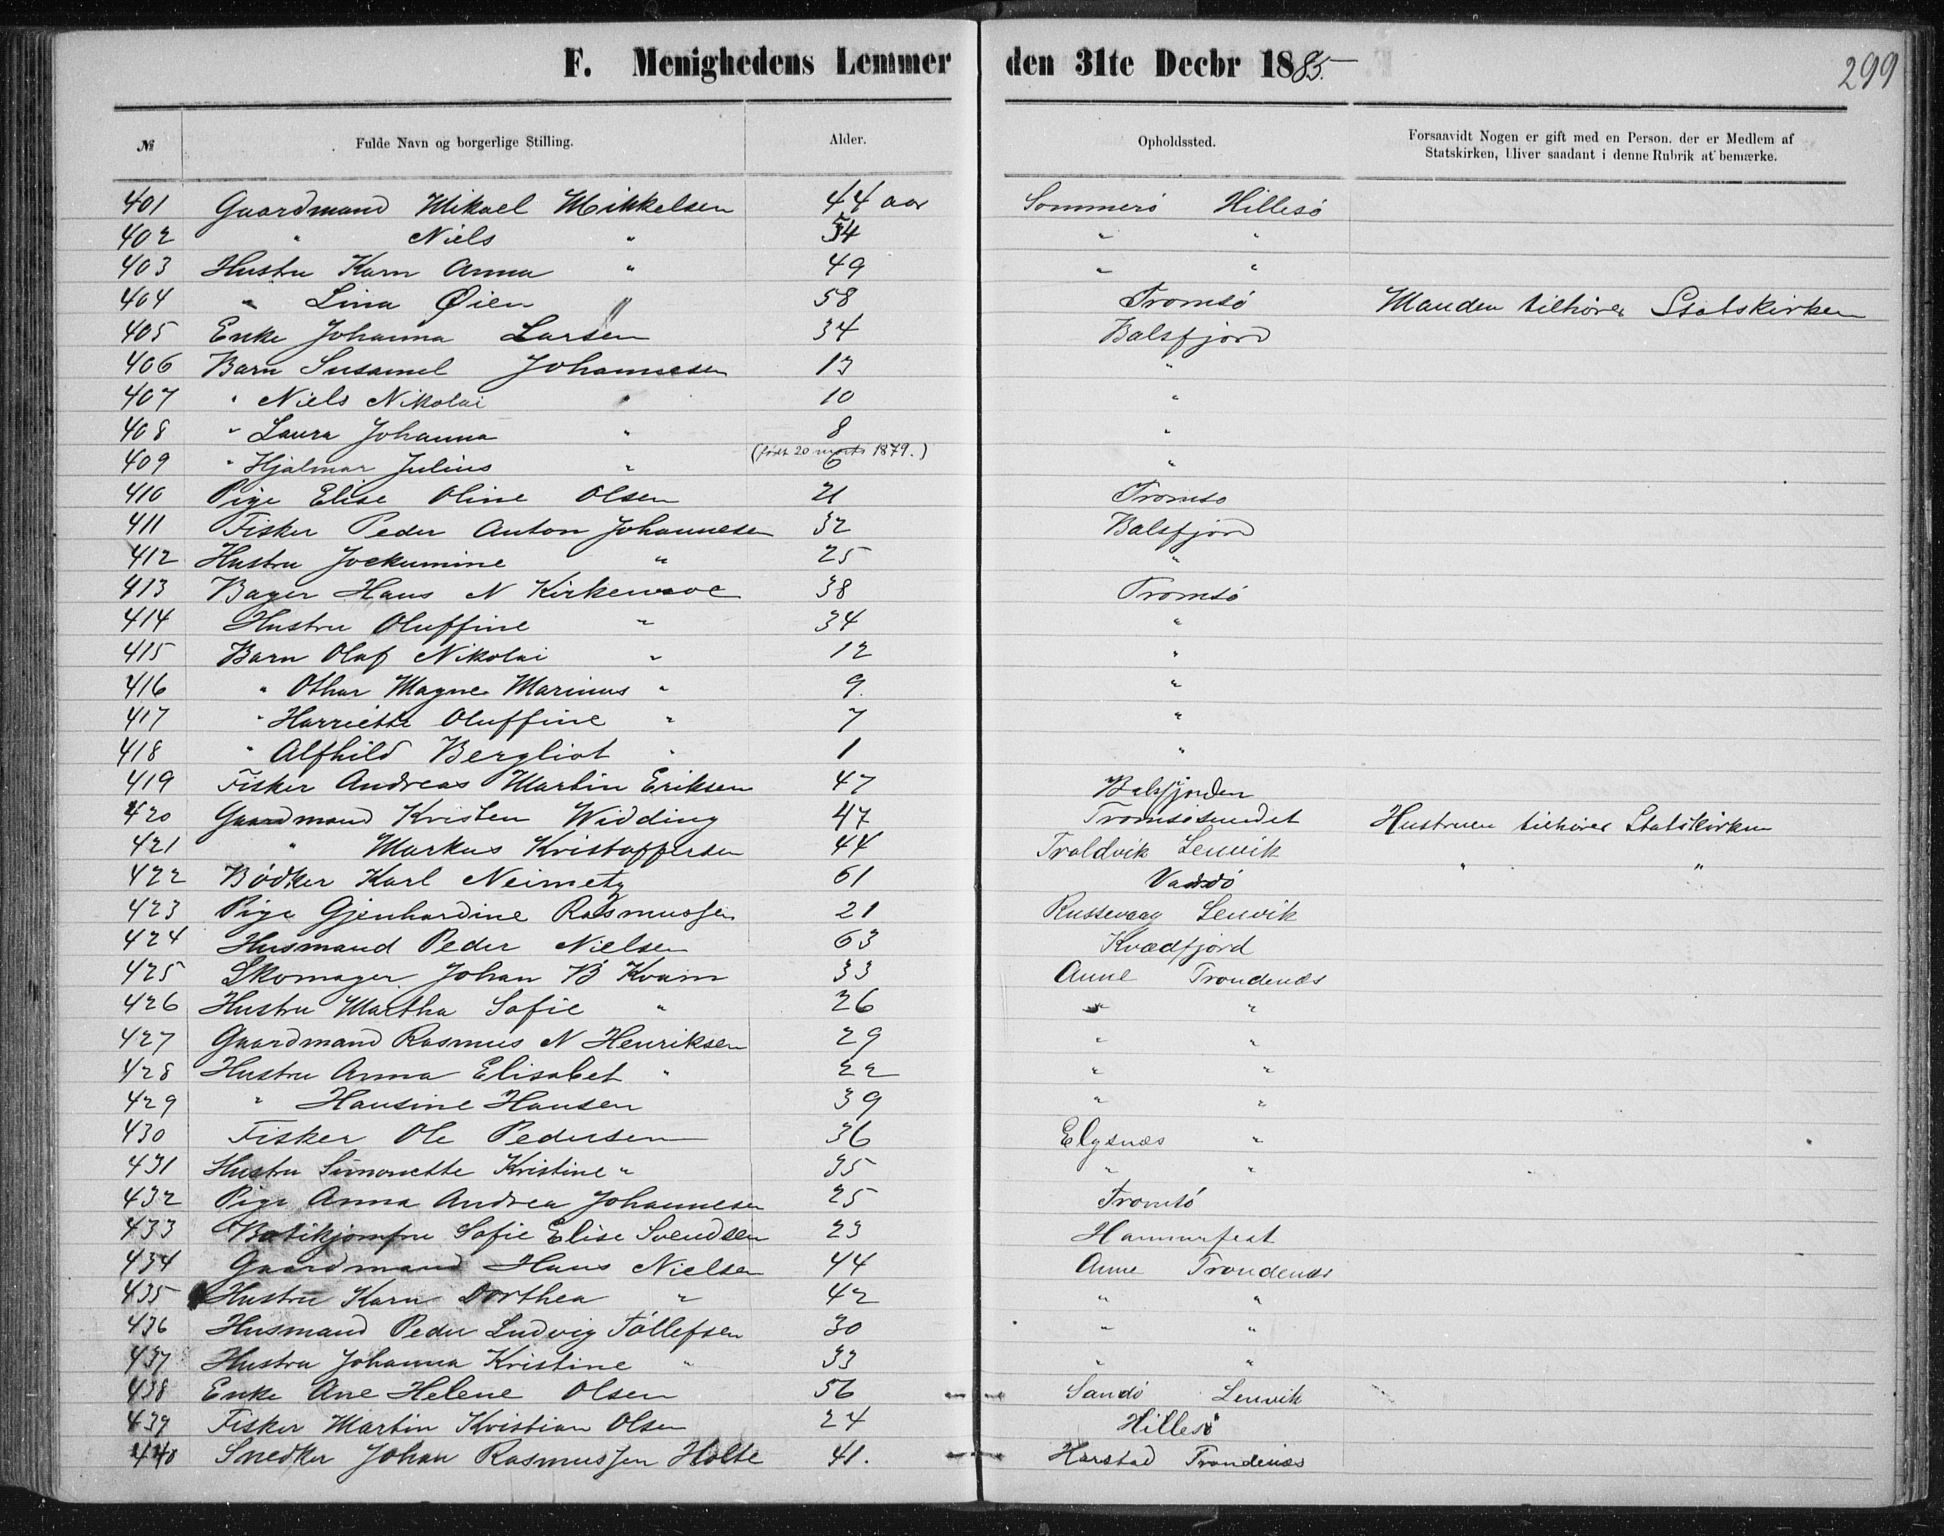 F. Menighedens Lemmer den 31te Decbr 1885.
299
№ Fulde Navn og borgerlige Stilling. Alder. Opholdssted. Forsaavidt Nogen er gift med en Person, der er Medlem af Statskirken, bliver saadant i denne Rubrik at bemærke.
401 Gaardmand Mikael Mikkelsen 44 aar Sommerö Hillesö
402 " Niels " 54 " "
403 Hustru Karn Anna " 49 " "
404 " Lina Øien " 58 Tromsö Manden tilhører Statskirken
405 Enke Johanna Larsen 34 Balsfjord
406 Barn Susamel Johannesen 13 "
407 " Niels Nikolai " 10 "
408 " Laura Johanna " 8 "
(født 20 marts 1879.)
409 " Hjalmar Julius " 6 "
410 Pige Elise Oline Olsen 21 Tromso
411 Fisker Peder Anton Johannesen 32 Balsfjord
412 Hustru Jockumine " 25 "
413 Bager Hans N 38 Tromsö
414 Hustru Oluffine " 34 "
415 Barn Olaf Nikolai " 12 "
416 " Othar Magne Marinus " 9. "
417 " Harriette Oluffine " 7 "
418 " Alfhild Bergliot " 1 "
419 Fisker Andreas Martin Eriksen 47 Balsfjorden
420 Gaardmand Kristen Widding 47 Tromsösundet Hustruen tilhører Statskirken
421 " Markus Kristoffersen 44 Traldvik Lenvik
422 Bödker Karl Neimetz 61 Vadsö " "
423 Pige Gjenhardine Rasmussen 21 Russevaag Lenvik
424 Husmand Peder Nielsen 63 Kvædfjord
425 Skomager Johan B Kvam 33 Aune Trondenæs
426 Hustru Martha Sofie " 26 " "
427 Gaardmand Rasmus N Henriksen 29 " "
428 Hustru Anna Elisabet " 22 " "
429 " Hansine Hansen 39 " "
430 Fisker Ole Pedersen 36 Elgsnæs "
431 Hustru Simonette Kristine " 35 " "
432 Pige Anna Andrea Johannesen 25 Tromsö
433 Butikjomfru Sofie Elise Svendsen 23 Hammerfest
434 Gaardmand Hans Nielsen 44 Aune Trondenæs
435 Hustru Karn Dorthea " 42 " "
436 Husmand Peder Ludvig Töllefsen 30 " "
437 Hustru Johanna Kristine " 33 " "
438 Enke Ane Helene Olsen 56 Sandö Lenvik
439 Fisker Martin Kristian Olsen 24 Hillesö
440 Snedker Johan Rasmussen Holte 41. Harstad Trondenæs